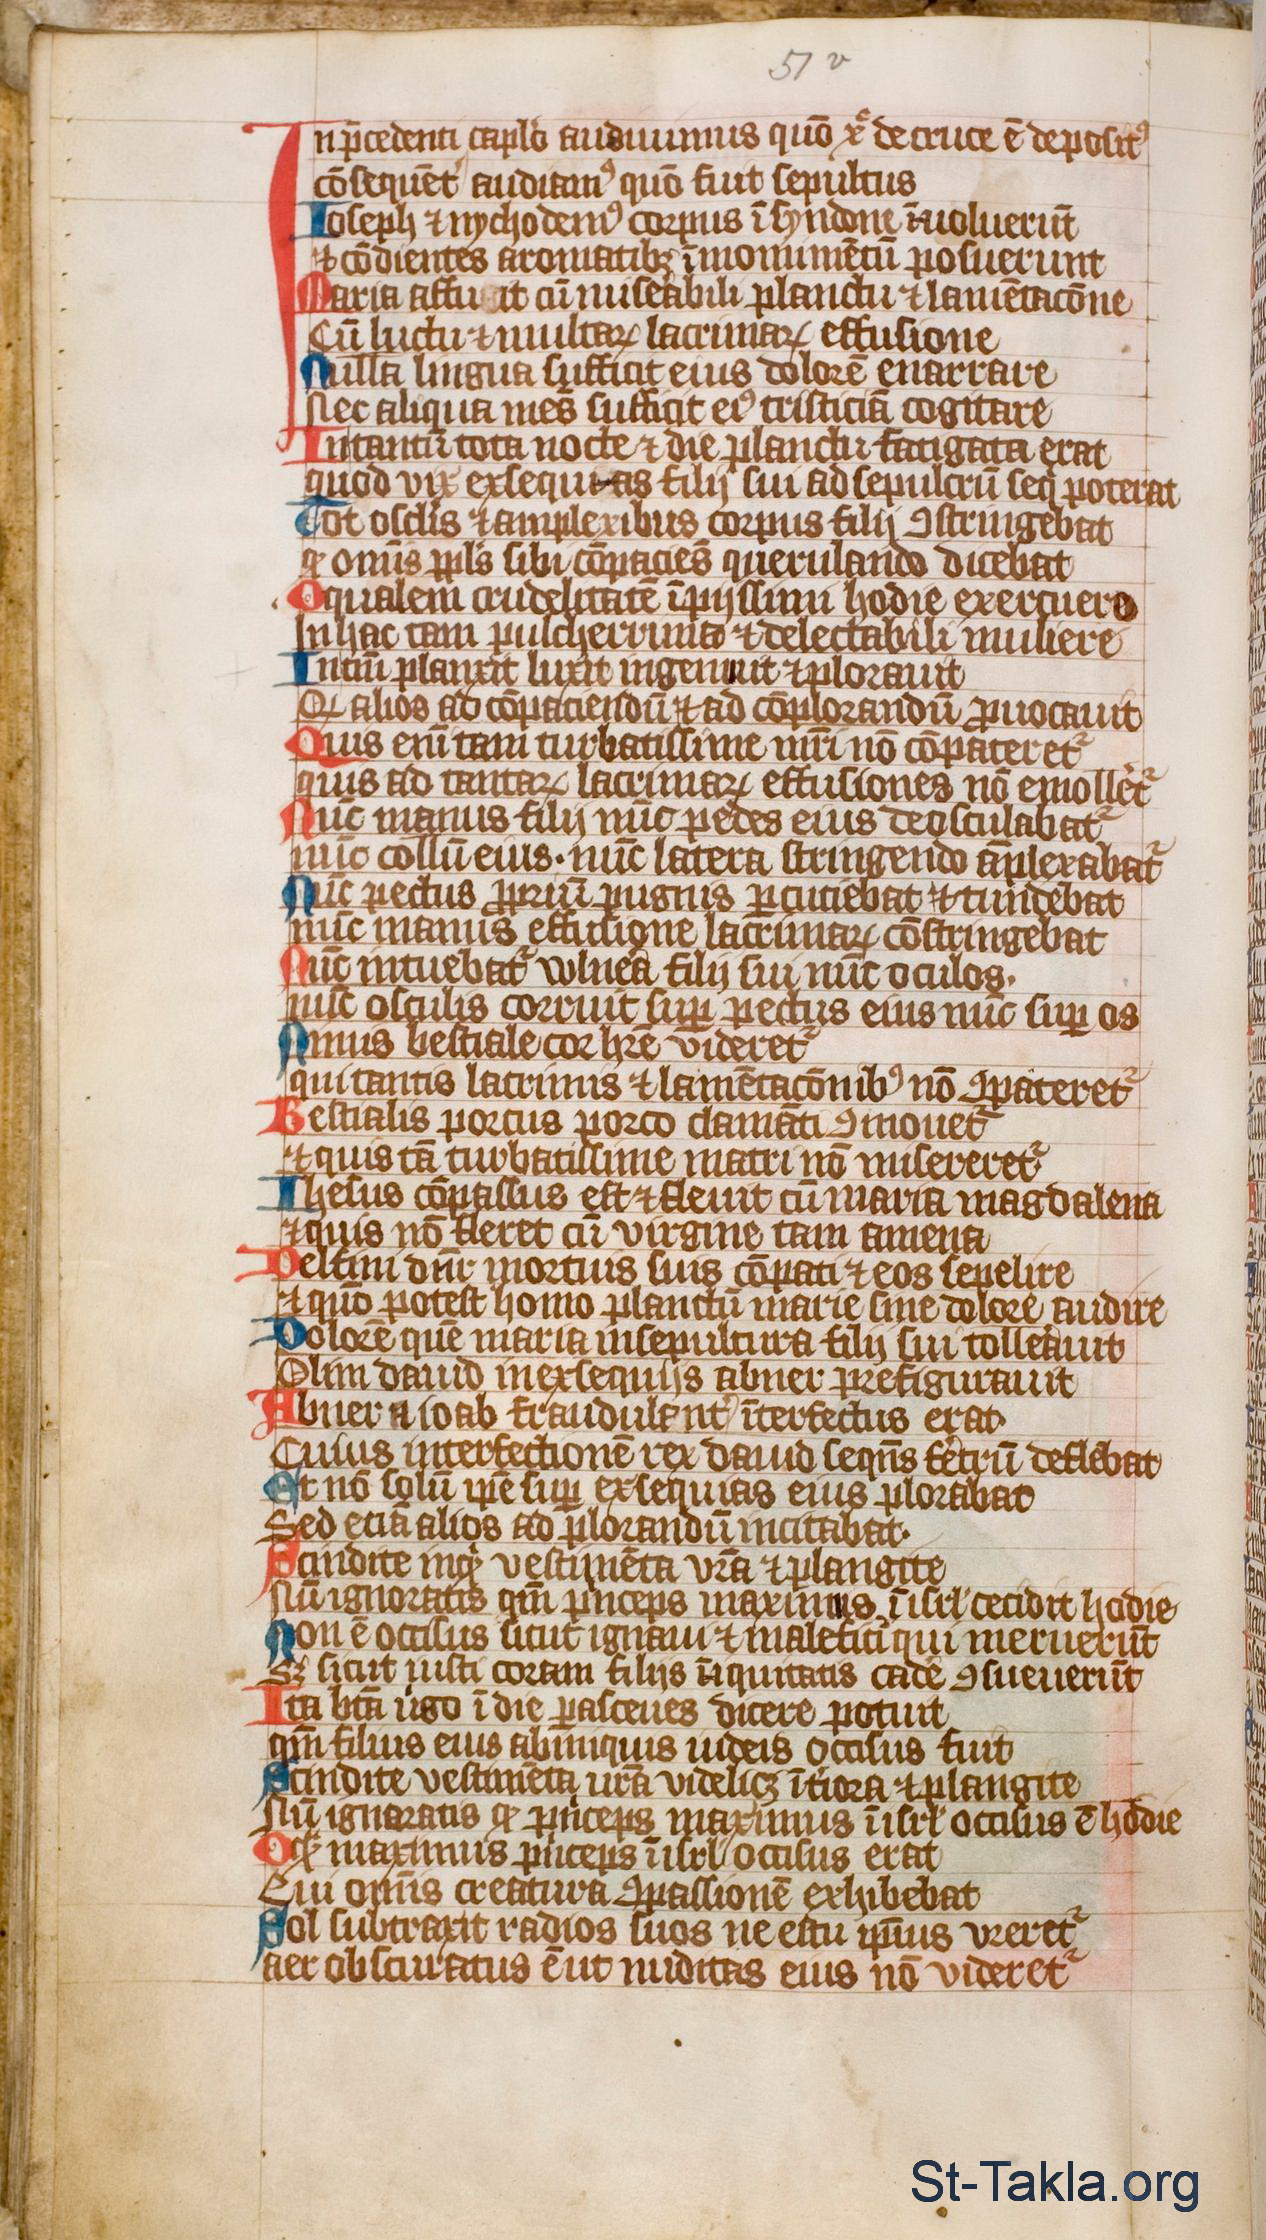 51 v
In p̄cedenti capl̄o audiuimus quō xp̄c de cruce ē depositꝰ
cōsequent᷑ audiamꝰ quō fuit sepultus
Ioseph ⁊ nychodemꝰ corpus ī syndone īuoluerūt
⁊ cōdientes aromatibꝫ ī monumētū posuerunt
Maria affuit cū mise᷑abili planctu ⁊ lamētacōne
Cū luctu ⁊ multaꝝ lacrimaꝝ effusione
Nulla lingua sufficit eius dolorē enarrare
Nec aliqua mēs sufficit eiꝰ tristiciā cogitare
Intantū tota nocte ⁊ die planctu fatigata erat
quod vix exsequias filij sui ad sepulcrū seq̄ poterat
Tot osclīs ⁊ amplexibus corpus filij ꝯstringebat
ꝙ omīs ppl̄s sibi cōpaciēs querulando dicebat
O qualem crudelitatē īpijssimi hodie exercuerō
In hac tam pulcherrima ⁊ delectabili muliere
Intm̄ planxit luxit ingemuit ⁊ plorauit
Qꝫ alios ad cōpaciendū ⁊ ad cōplorandū ꝓuocauit
Quis enī tam turbatissime mr̄i nō cōpateret᷑
quis ad tantaꝝ lacrimaꝝ effusiones nō emollēt᷑
Nūc manus filij nūc pedes eius deosculabat᷑
nūc collū eius · nūc latera stringendo āplexabat᷑
Nūc pectus ꝓpriū pugnis ꝑcuciebat ⁊ tundebat
nūc manus effusione lacrimaꝝ cōstringebat
Nūc intuebat᷑ wlnera filij sui nūc oculos ·
nūc osculis corruit suꝑ pectus eius nūc suꝑ os
Nimis bestiale cor hr̄e videret᷑
qui tantis lacrimis ⁊ lamētacōnibꝰ nō ꝯpateret᷑
Bestialis porcus porco clamāti ꝯmouet᷑
⁊ quis tā turbatissime matri nō misereret᷑
Ihesus cōpassus est ⁊ fleuit cū maria magdalena
⁊ quis nō fleret cū virgine tam amena
Delfini dn̄r mortuis suis cōpati ⁊ eos sepelire
⁊ quō potest homo planctū marie sine dolore audire
Dolorē quē maria in sepultura filij sui tolle᷑auit
Olim dauid in exsequijs abner prefigurauit
Abner a ioab fraudulent᷑ īterfectus erat
Cuius interfectionē rex dauid seqn̄s fe᷑etrū deflebat
Et nō solū ip̄e suꝑ exsequias eius plorabat
Sed eciā alios ad plorandū incitabat ·
Scindite inqͥ vestimēta vr̄a ⁊ plangite
Nū ignoratis qm̄ pͥnceps maximus ī isrl̄ cecidit hodie
Non ē occisus sicut ignaui ⁊ malefici qui meruerūt
Sꝫ sicut iusti coram filijs īiquitatis cade᷑ ꝯsueuerūt
Ita bt̄a ūgo ī die pasceues dicere potuit
qm̄ filius eius ab iniquis iudeis occisus fuit
Scindite vestimēta ur̄a videlicꝫ īt᷑iora ⁊ plangite
Nū ignoratis ꝙ pͥnceps maximus ī isrl̄ occisus ē hodie
O qꝫ maximus pͥnceps ī isrl̄ occisus erat
Cui omīs creatura ꝯpassionē exhibebat
Sol subtraxit radios suos ne estu ip̄ius vreret᷑
aer obscuratus ē ut nuditas eius nō videret᷑
St-Takla.org